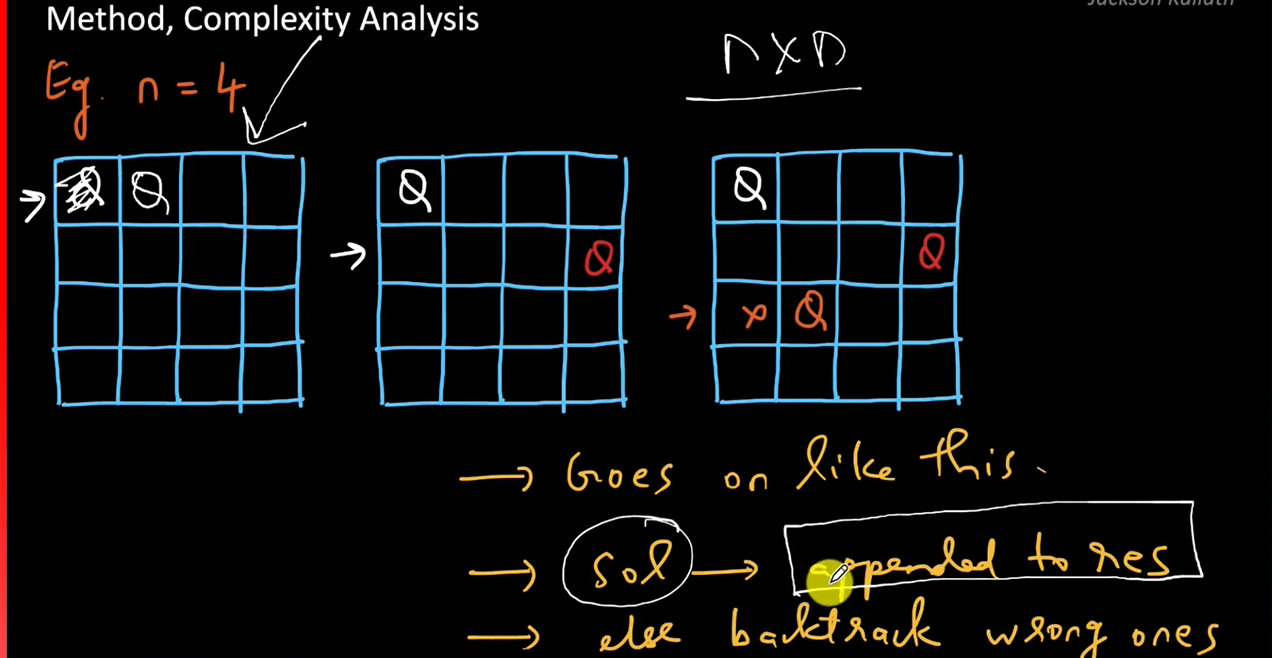 Method, Complexity Analysis
Eg. n = 4
n X n
Q Q
Q
Q
Q
Q
x Q
→ Goes on like this.
→ sol → appended to res
→ else backtrack wrong ones